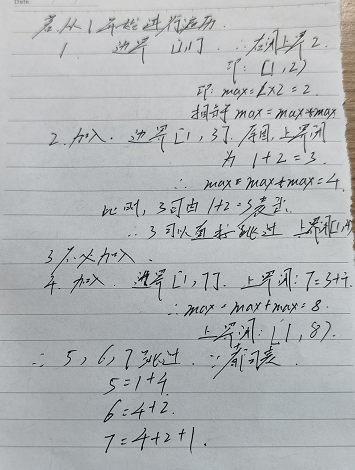 若从1开始进行运用
1 边界 [1,1] ∴右闭上界2.
即: [1,2)
即: max=1×2=2.
相当于 max=max+max
2.加入. 边界[1,3]. 原因,上界闭
为 1+2=3.
∴ max=max+max=4.
此时,3可由1+2=3表示.
∴3可以直接跳过 上界闭[1,4)
3不必加入.
4.加入. 边界[1,7]. 上界闭:7=3+4.
∴max=max+max=8.
上界闭:[1,8).
∴ 5,6,7跳过. ∵都可表
5=1+4.
6=4+2.
7=4+2+1.